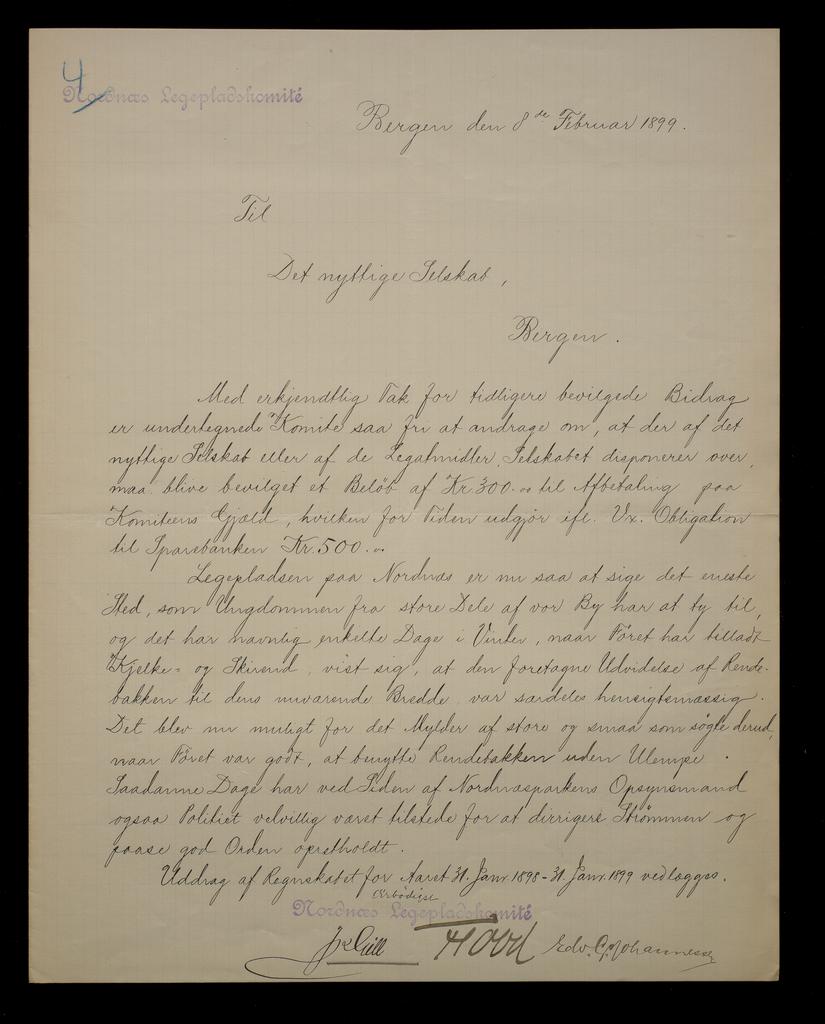 4
Nordnæs Legepladskomité
Bergen den 8de Februar 1899.
Til
Det nyttige Selskab,
Bergen.
Med erkjendtlig Tak for tidligere bevilgede Bidrag
er undertegnede Komite saa fri at andrage om, at der af det
nyttige Selskab eller af de Legatmidler, Selskabet disponerer over,
maa blive bevilget et Beløb af Kr. 300.00 til Afbetaling paa
Komiteens Gjæld, hvilken for Tiden udgjør ifl. Vx. Obligation
til Sparebanken Kr. 500.00
Legepladsen paa Nordnæs er nu saa at sige det eneste
Sted, som Ungdommen fra store Dele af vor By har at ty til,
og det har navnlig enkelte Dage i Vinter, naar Føret har tilladt
Kjelke- og Skirend, vist sig, at den foretagne Udvidelse af Rende-
bakken til dens nuværende Bredde var særdeles hensigtsmæssig.
Det blev nu muligt for det Mylder af store og smaa som søgte derud,
naar Føret var godt, at benytte Rendebakken uden Ulempe.
Saadanne Dage har ved Siden af Nordnæsparkens Opsynsmand
ogsaa Politiet velvillig været tilstede for at dirrigere Strømmen og
paase god Orden opretholdt.
Uddrag af Regnskabet for Aaret 31. Janr. 1898 - 31. Janr. 1899 vedlægges.
Ærbødigst
Nordnæs Legepladskomité
Edv. G. Johannessen